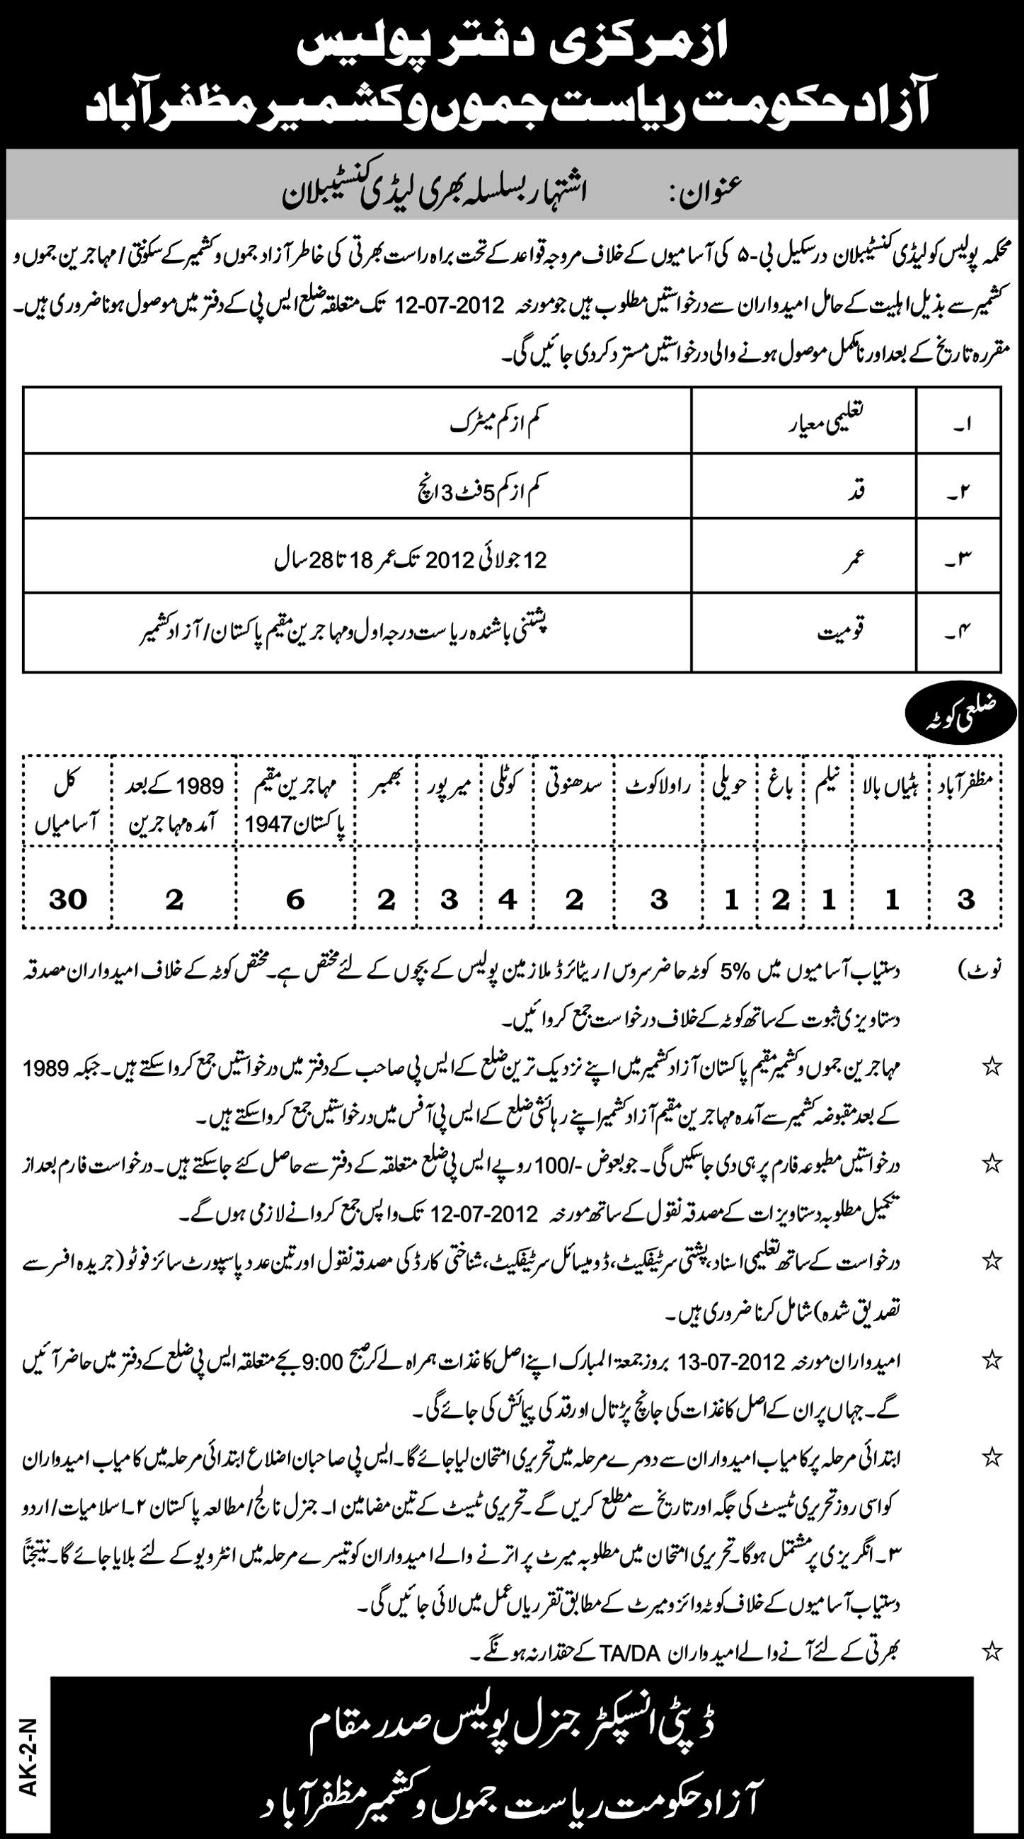 از مرکزی دفتر پولیس
آزاد حکومت ریاست جموں و کشمیر مظفرآباد
عنوان: اشتہار بسلسلہ بھرتی لیڈی کنسٹیبلان
محکمہ پولیس کو لیڈی کنسٹیبلان در سکیل بی-۵ کی آسامیوں کے خلاف مروجہ قواعد کے تحت براہ راست بھرتی کی خاطر آزاد جموں و کشمیر کے سکونتی/مہاجرین جموں و
کشمیر سے بذیل اہلیت کے حامل امیدواران سے درخواستیں مطلوب ہیں جو مورخہ 12-07-2012 تک متعلقہ ضلع ایس پی کے دفتر میں موصول ہونا ضروری ہیں۔
مقررہ تاریخ کے بعد اور نامکمل موصول ہونے والی درخواستیں مسترد کر دی جائیں گی۔
۱۔ تعلیمی معیار کم از کم میٹرک
۲۔ قد کم از کم 5 فٹ 3 انچ
۳۔ عمر 12 جولائی 2012 تک عمر 18 تا 28 سال
۴۔ قومیت پشتنی باشندہ ریاست درجہ اول و مہاجرین مقیم پاکستان/آزاد کشمیر
ضلعی کوٹہ
مظفرآباد ہٹیاں بالا نیلم باغ حویلی راولاکوٹ سدھنوتی کوٹلی میرپور بھمبر مہاجرین مقیم پاکستان 1947 1989 کے بعد آمدہ مہاجرین کل آسامیاں
3 1 1 2 1 3 2 4 3 2 6 2 30
نوٹ) دستیاب آسامیوں میں 5% کوٹہ حاضر سروس/ریٹائرڈ ملازمین پولیس کے بچوں کے لئے مختص ہے۔ مختص کوٹہ کے خلاف امیدواران مصدقہ
دستاویزی ثبوت کے ساتھ کوٹہ کے خلاف درخواست جمع کروائیں۔
☆ مہاجرین جموں و کشمیر مقیم پاکستان آزاد کشمیر میں اپنے نزدیک ترین ضلع کے ایس پی صاحب کے دفتر میں درخواستیں جمع کروا سکتے ہیں۔ جبکہ 1989
کے بعد مقبوضہ کشمیر سے آمدہ مہاجرین مقیم آزاد کشمیر اپنے رہائشی ضلع کے ایس پی آفس میں درخواستیں جمع کروا سکتے ہیں۔
☆ درخواستیں مطبوعہ فارم پر ہی دی جا سکیں گی۔ جو بعوض -/100 روپے ایس پی ضلع متعلقہ کے دفتر سے حاصل کئے جا سکتے ہیں۔ درخواست فارم بعد از
تکمیل مطلوبہ دستاویزات کے مصدقہ نقول کے ساتھ مورخہ 12-07-2012 تک واپس جمع کروانے لازمی ہوں گے۔
☆ درخواست کے ساتھ تعلیمی اسناد، پشتی سرٹیفکیٹ، ڈومیسائل سرٹیفکیٹ، شناختی کارڈ کی مصدقہ نقول اور تین عدد پاسپورٹ سائز فوٹو (جریدہ افسر سے
تصدیق شدہ) شامل کرنا ضروری ہیں۔
☆ امیدواران مورخہ 13-07-2012 بروز جمعۃ المبارک اپنے اصل کاغذات ہمراہ لے کر صبح 9:00 بجے متعلقہ ایس پی ضلع کے دفتر میں حاضر آئیں
گے۔ جہاں پر ان کے اصل کاغذات کی جانچ پڑتال اور قد کی پیمائش کی جائے گی۔
☆ ابتدائی مرحلہ پر کامیاب امیدواران سے دوسرے مرحلہ میں تحریری امتحان لیا جائے گا۔ ایس پی صاحبان اضلاع ابتدائی مرحلہ میں کامیاب امیدواران
کو اسی روز تحریری ٹیسٹ کی جگہ اور تاریخ سے مطلع کریں گے۔ تحریری ٹیسٹ کے تین مضامین ۱۔ جنرل نالج/مطالعہ پاکستان ۲۔ اسلامیات/اردو
۳۔ انگریزی پر مشتمل ہوگا۔ تحریری امتحان میں مطلوبہ میرٹ پر اترنے والے امیدواران کو تیسرے مرحلہ میں انٹرویو کے لئے بلایا جائے گا۔ نتیجتاً
دستیاب آسامیوں کے خلاف کوٹہ وائز و میرٹ کے مطابق تقرریاں عمل میں لائی جائیں گی۔
☆ بھرتی کے لئے آنے والے امیدواران TA/DA کے حقدار نہ ہونگے۔
ڈپٹی انسپکٹر جنرل پولیس صدر مقام
آزاد حکومت ریاست جموں و کشمیر مظفرآباد
AK-2-N